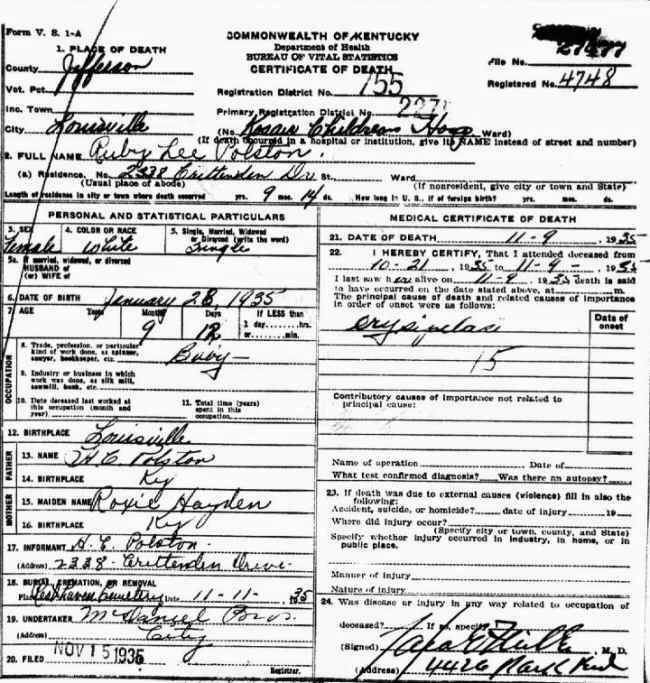 Form V. S. 1-A
COMMONWEALTH OF KENTUCKY
Department of Health
BUREAU OF VITAL STATISTICS
CERTIFICATE OF DEATH
File No. 27477
Registered No. 4748
1. PLACE OF DEATH
County Jefferson
Vot. Pct.
Inc. Town
City Louisville
Registration District No. 755
Primary Registration District No.
(No. Kosair Childrens Hosp Ward)
(If death occurred in a hospital or institution, give its NAME instead of street and number)
2. FULL NAME Ruby Lee Polston.
(a) Residence, No. 2338 Crittenden Dr. St., Ward
(Usual place of abode) (If nonresident, give city or town and State)
Length of residence in city or town where death occurred yrs. 9 mos. 14 ds. How long in U. S., if of foreign birth? yrs. mos. ds.
PERSONAL AND STATISTICAL PARTICULARS
3. SEX Female
4. COLOR OR RACE White
5. Single, Married, Widowed, or Divorced (write the word) Single
5a. If married, widowed, or divorced
HUSBAND of
(or) WIFE of
6. DATE OF BIRTH January 28, 1935
7. AGE Years Months 9 Days 12
If LESS than
1 day,......hrs.
or.......min.
OCCUPATION
8. Trade, profession, or particular
kind of work done, as spinner,
sawyer, bookkeeper, etc. Baby
9. Industry or business in which
work was done, as silk mill,
sawmill, bank, etc.
10. Date deceased last worked at
this occupation (month and
year)
11. Total time (years)
spent in this
occupation
12. BIRTHPLACE Louisville
FATHER
13. NAME H. C. Polston
14. BIRTHPLACE Ky
MOTHER
15. MAIDEN NAME Roxie Hayden
16. BIRTHPLACE Ky
17. INFORMANT H. C. Polston
(Address) 2338 - Crittenden Drive
18. BURIAL, CREMATION, OR REMOVAL
Place Resthaven Cemetery Date 11-11- 1935
19. UNDERTAKER McDaniel Bros.
(Address) City
20. FILED NOV 15 1935
Registrar.
MEDICAL CERTIFICATE OF DEATH
21. DATE OF DEATH 11-9 , 1935
22. I HEREBY CERTIFY, That I attended deceased from
10-21 , 1935 to 11-9- , 1935
I last saw h alive on 11-9 , 1935 death is said
to have occurred on the date stated above, at m.
The principal cause of death and related causes of importance
in order of onset were as follows:
Date of
onset
erysipelas
15
Contributory causes of importance not related to
principal cause:
Name of operation Date of
What test confirmed diagnosis? Was there an autopsy?
23. If death was due to external causes (violence) fill in also the
following:
Accident, suicide, or homicide? date of injury 19
Where did injury occur?
(Specify city or town, county, and State)
Specify whether injury occurred in industry, in home, or in
public place.
Manner of injury
Nature of injury
24. Was disease or injury in any way related to occupation of
deceased? If so, specify
(Signed) , M. D.
(Address) 4426